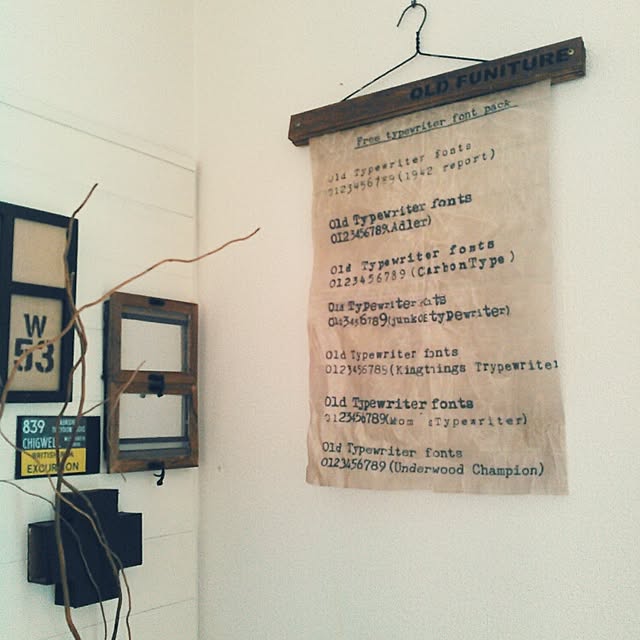 OLD FUNITURE
Free typewriter font pack
Old Typewriter fonts
0123456789(1942 report)
Old Typewriter fonts
0123456789(Adler)
Old Typewriter fonts
0123456789(CarbonType)
Old Typewriter fonts
0123456789(junkoEtypewriter)
Old Typewriter fonts
0123456789(Kingthings Trypewriter
Old Typewriter fonts
0123456789(Mom´sTypewriter)
Old Typewriter fonts
0123456789(Underwood Champion)
W
53
839
CHIGWEL
BRITISH
EXCURSION